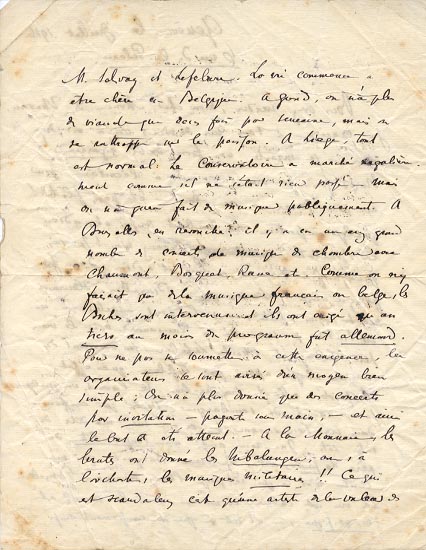 M. Solvay et Lefebvre. La vie commence a
etre chère en Belgique. A grand, on n'a plus
de viande que deux fois par semaine, mais on
se rattrappe sur le poisson. A Liège, tout
est normal: Le Conservatoire a marché régulière-
ment comme si il ne s'était rien passé — mais
on n'a guère fait de musique publiquement. A
Bruxelles, en revanche, il y a eu un grand
nombre de concerts de musique de chambre avec
Chaumont, Bosquet, et Comme on n'y
faisait que de la musique française ou belge, les
Boches sont intervenus et ils ont exigé qu'un
tiers au moins du programme fut allemand.
Pour ne pas se soumettre à cette exigence, les
organisateurs se sont avisé d'un moyen bien
simple: On n'a plus donné que des concerts
par invitation — payants sous main; — et ainsi
le but a été atteint. — A la Monnaie, les
brutes ont donné les Nibelungen, avec, à
l'orchestre, les musiques militaires!! Ce qui
est scandaleux c'est qu'une artiste de la valeur de